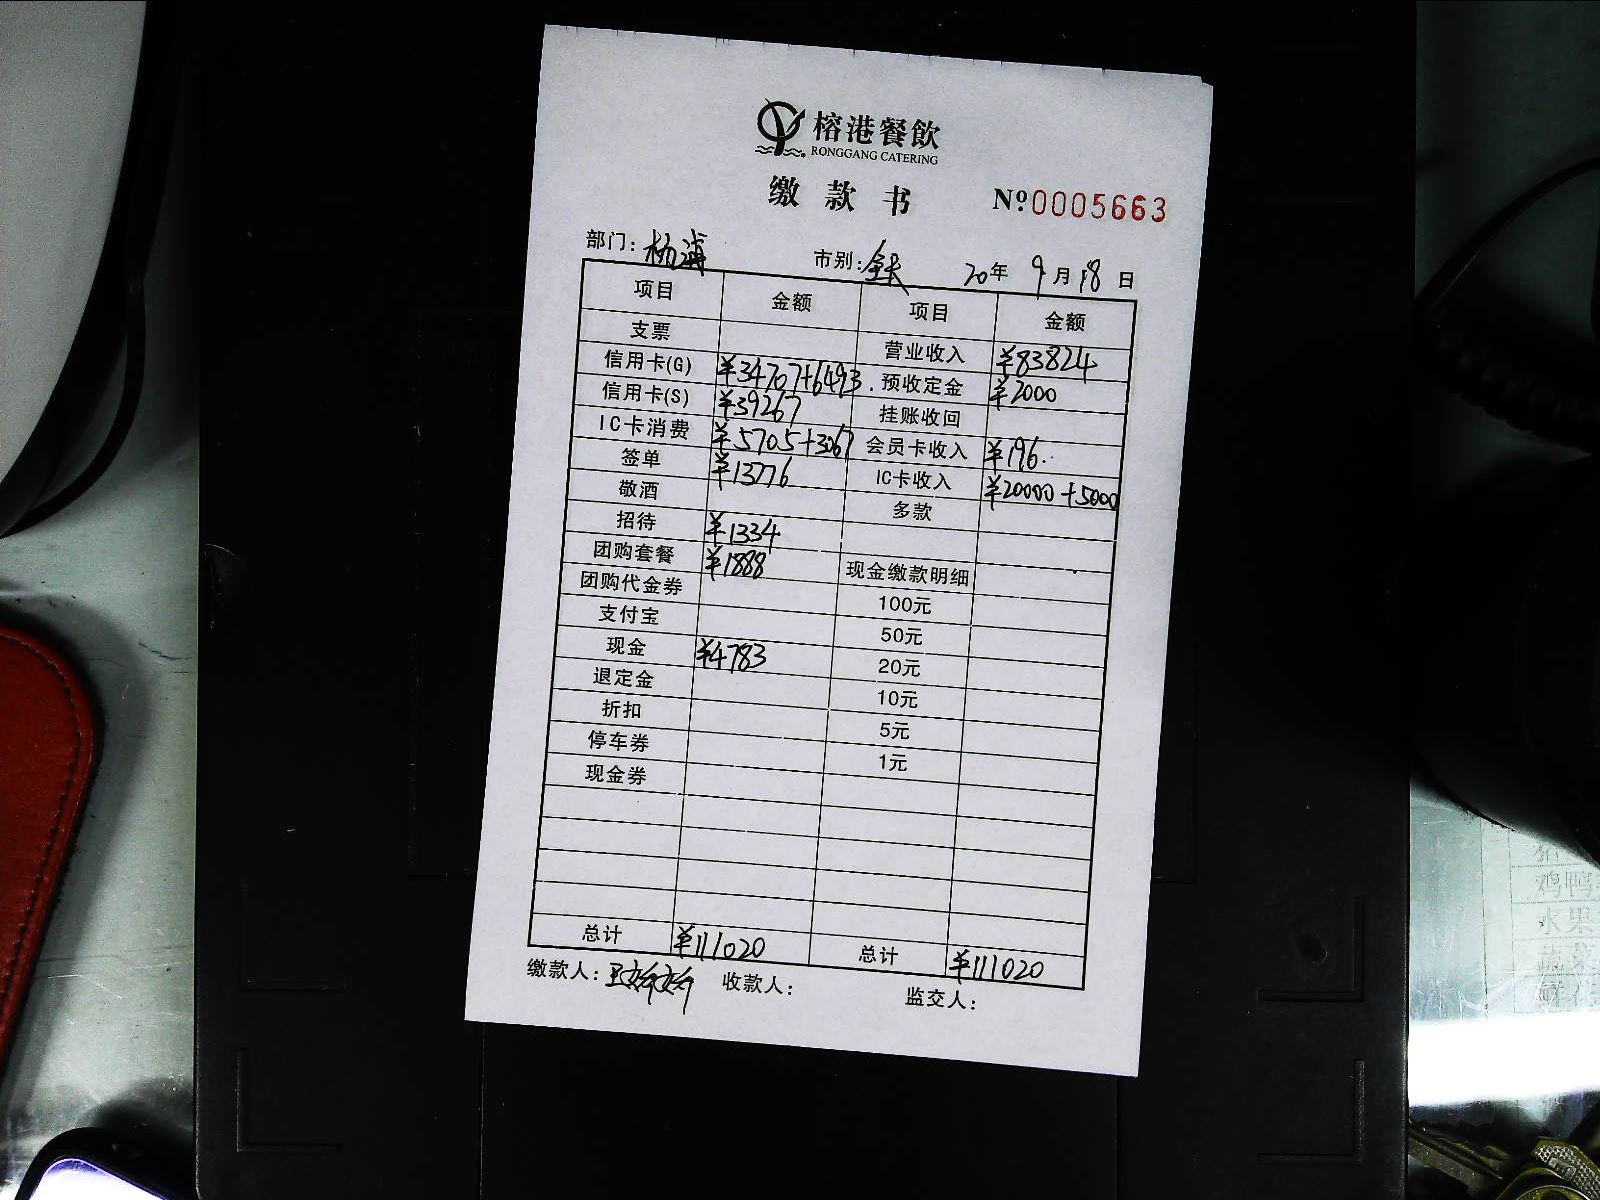 榕港餐飲
RONGGANG CATERING
缴款书 Nº0005663
部门：杨浦 市别：全天 20年 9月18日
项目 金额 项目 金额
支票 营业收入 ¥83824
信用卡(G) ¥34707+6493 预收定金 ¥2000
信用卡(S) ¥39267 挂账收回
IC卡消费 ¥5705+3067 会员卡收入 ¥196
签单 ¥13776 IC卡收入 ¥20000+5000
敬酒 多款
招待 ¥1334
团购套餐 ¥1888 现金缴款明细
团购代金券 100元
支付宝 50元
现金 ¥4783 20元
退定金 10元
折扣 5元
停车券 1元
现金券
总计 ¥111020 总计 ¥111020
缴款人： 收款人： 监交人：
鸡鸭
水果
蔬菜